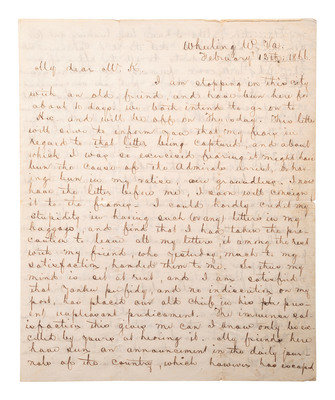 Wheeling W. Va.
February 13th, 1866
My dear Mr. K.
I am stopping in this city
with an old friend, and have been here for
about 10 days. We both intend to go on to
and will be off on Thursday. This letter
will serve to inform you that my fears in
regard to that letter being captured, and about
which I was so exercised fearing it might have
been the cause of the Admirals arrest, & hav-
ing been my notice, are groundless. I now
have the letter before me, I save will consign
it to the flames — I could hardly credit my
stupidity in having such letters in my
baggage, and find that I had taken the pre-
caution to leave all my letters, it among the rest
with my friend, who yesterday, much to my
satisfaction, handed them to me. So thus my
mind is set at rest, as I am satisfied
that Yankee perfidy, and no indiscretion on my
part, has placed our old Chief in his present
unpleasant predicament. The immense sat-
isfaction this gives me can I know only be ex-
celled by yours at hearing it. My friends here
have seen an announcement in the daily jour-
nals of the country, which however has escaped